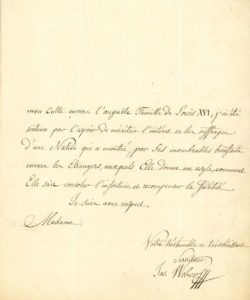 mon culte envers l'auguste Famille de Louis XVI, j'ai été
soutenu par l'espoir de mériter l'intérêt et les suffrages
d'une Nation qui a montré, par Ses innombrables bienfaits
envers les Etrangers, auxquels Elle donne un asyle, comment
Elle sait consoler l'infortune et récompenser la fidélité.
Je suis avec respect,
Madame,
Votre très humble et très obéissant
Serviteur
Jos. Weber